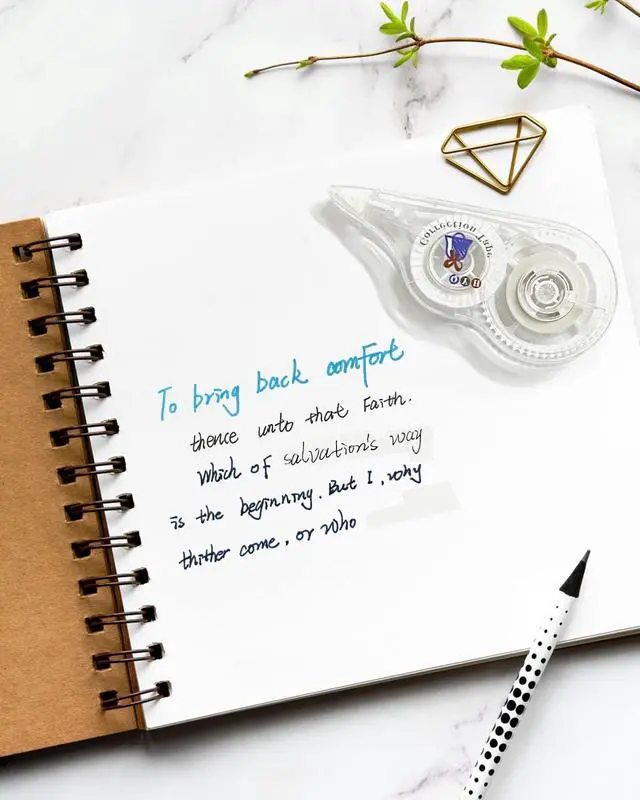 Correction Tape
To bring back comfort
thence unto that Faith.
Which of salvation's way
is the beginning. But I, why
thither come, or who